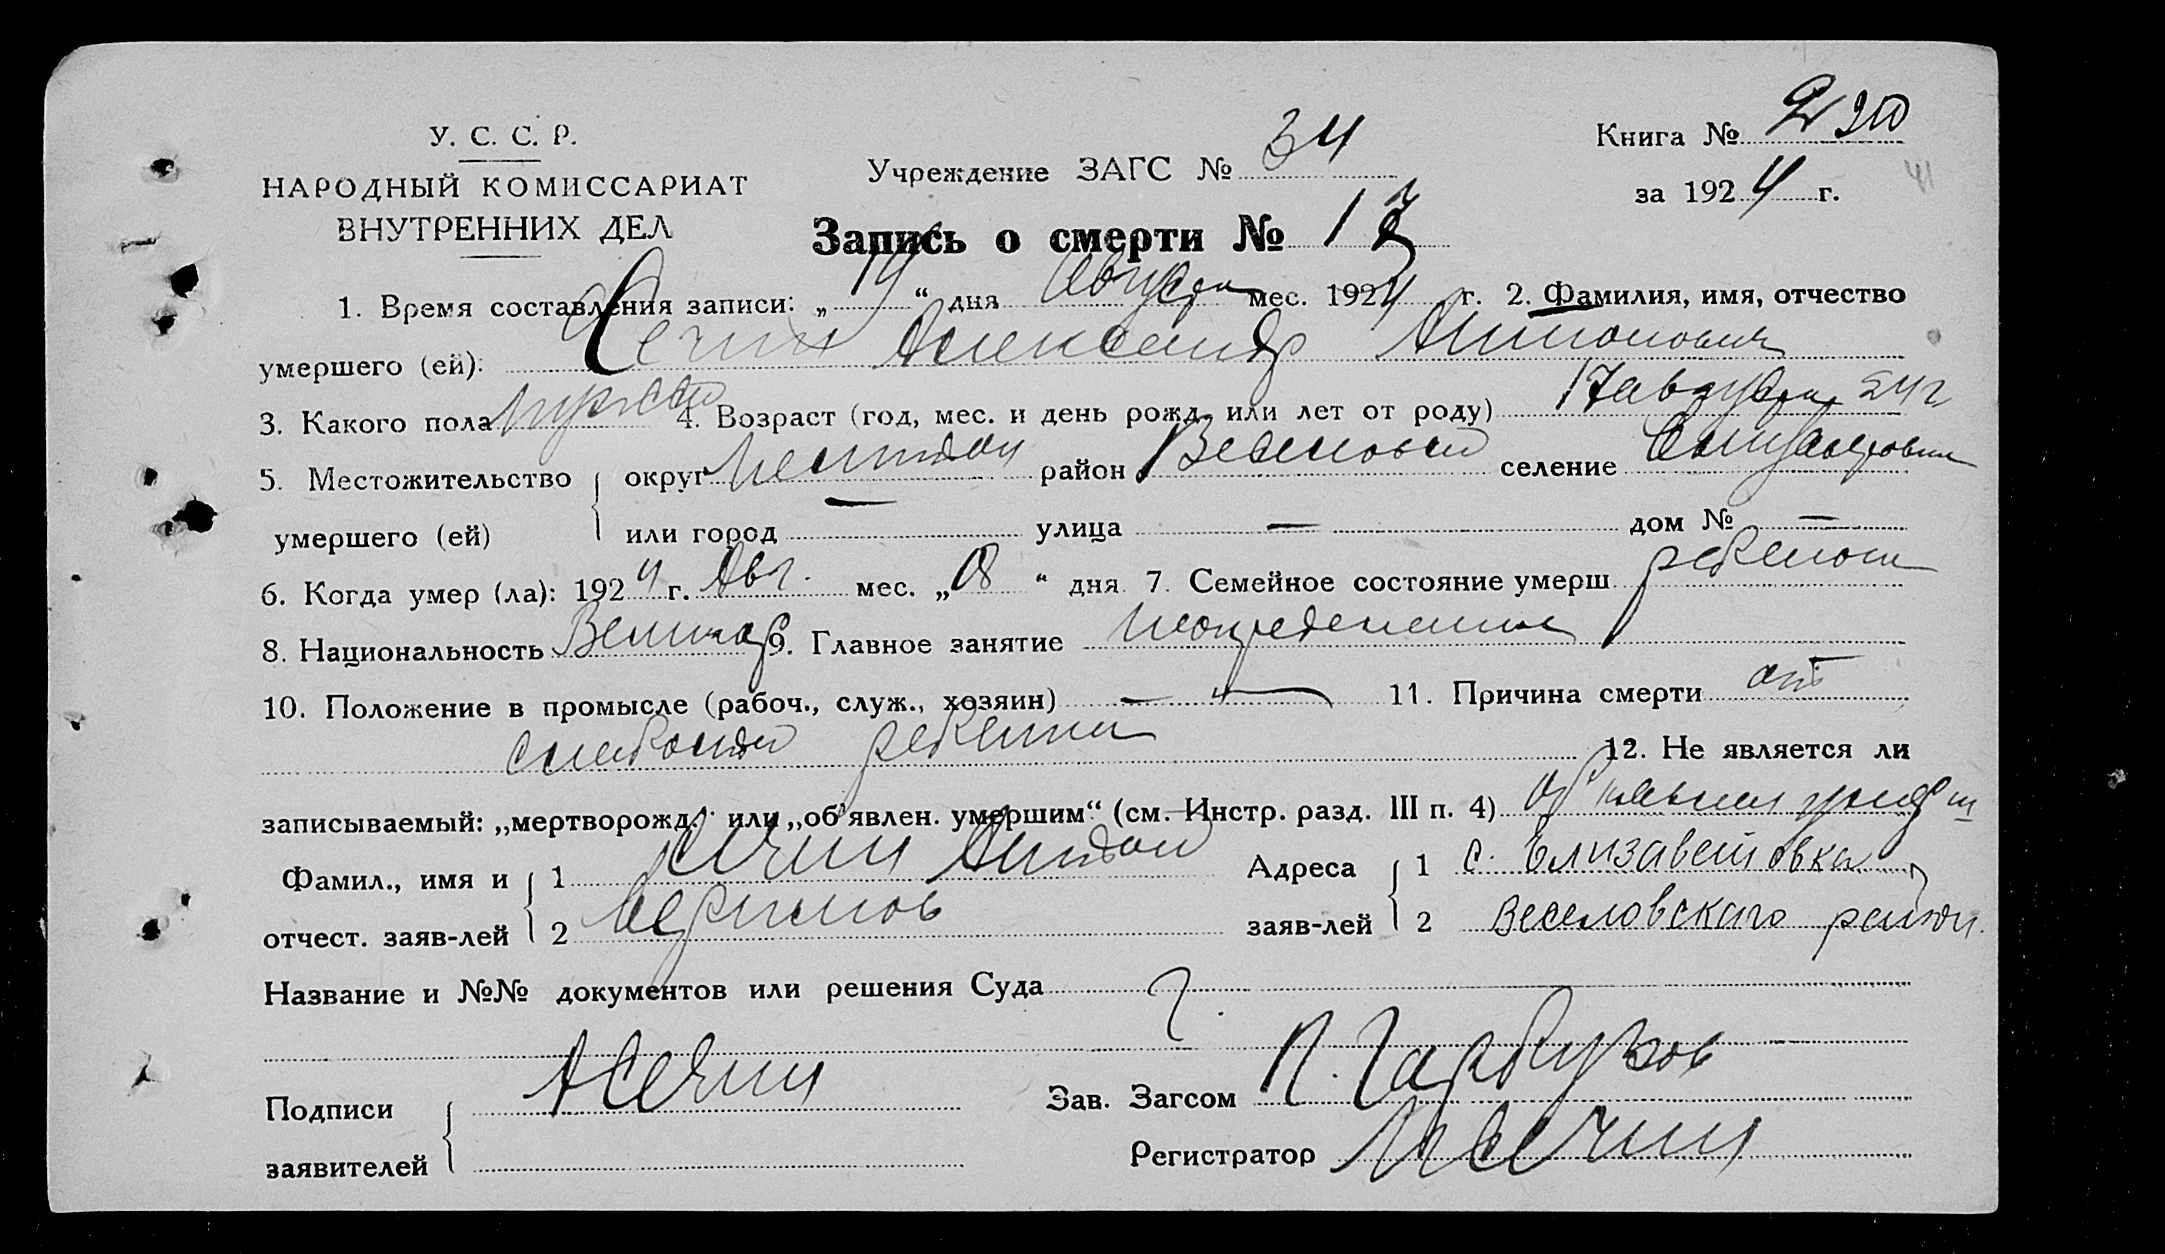 У. С. С. Р.
НАРОДНЫЙ КОМИССАРИАТ
ВНУТРЕННИХ ДЕЛ
Учреждение ЗАГС № 34
Книга №
за 1924 г.
Запись о смерти № 17
1. Время составления записи: „19“ дня Августа мес. 1924 г. 2. Фамилия, имя, отчество
умершего (ей): Сечин Александр Антонович
3. Какого пола мужско 4. Возраст (год, мес. и день рожд. или лет от роду) 17 августа 24 г
5. Местожительство умершего (ей) округ район Веселовск селение
или город — улица — дом № —
6. Когда умер (ла): 1924 г. Авг. мес. „18“ дня 7. Семейное состояние умерш. ребенок
8. Национальность 9. Главное занятие
10. Положение в промысле (рабоч., служ., хозяин) — „ — 11. Причина смерти от
слабости ребенка 12. Не является ли
записываемый: „мертворожд.“ или „об'явлен. умершим“ (см. Инстр. разд. III п. 4)
Фамил., имя и отчест. заяв-лей 1 Сечин Антон
2
Адреса заяв-лей 1 с. Елизаветовка
2 Веселовского район.
Название и №№ документов или решения Суда
Подписи заявителей АСечин
Зав. Загсом П. Гарбузов
Регистратор